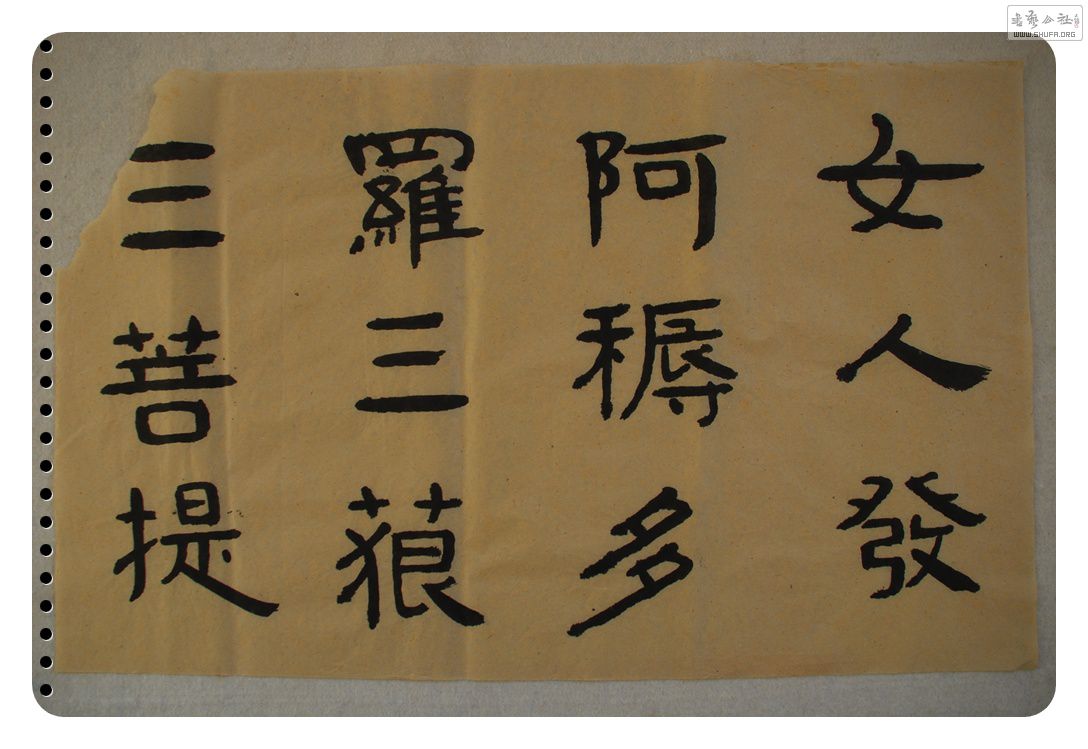 女人發
阿耨多
羅三藐
三菩提
書藝公社
WWW.SHUFA.ORG